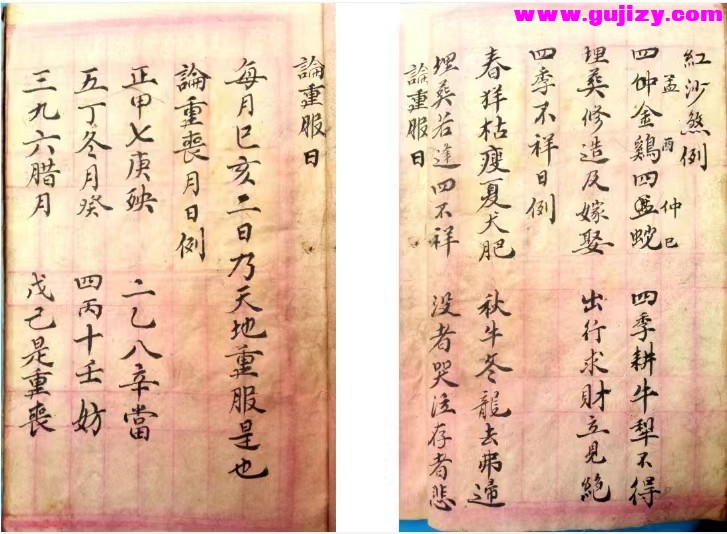 www.gujizy.com
紅沙煞例
孟酉 仲巳
四仲金鷄四孟蛇 四季耕牛犁不得
埋葬修造及嫁娶 出行求財立見絕
四季不祥日例
春羊枯瘦夏犬肥 秋牛冬龍去
埋葬若逢四不祥 没者哭泣存者悲
論重服日
論重服日
每月巳亥二日乃天地重服是也
論重喪月日例
正甲七庚殃 二乙八辛當
五丁冬月癸 四丙十壬妨
三九六腊月 戊己是重喪